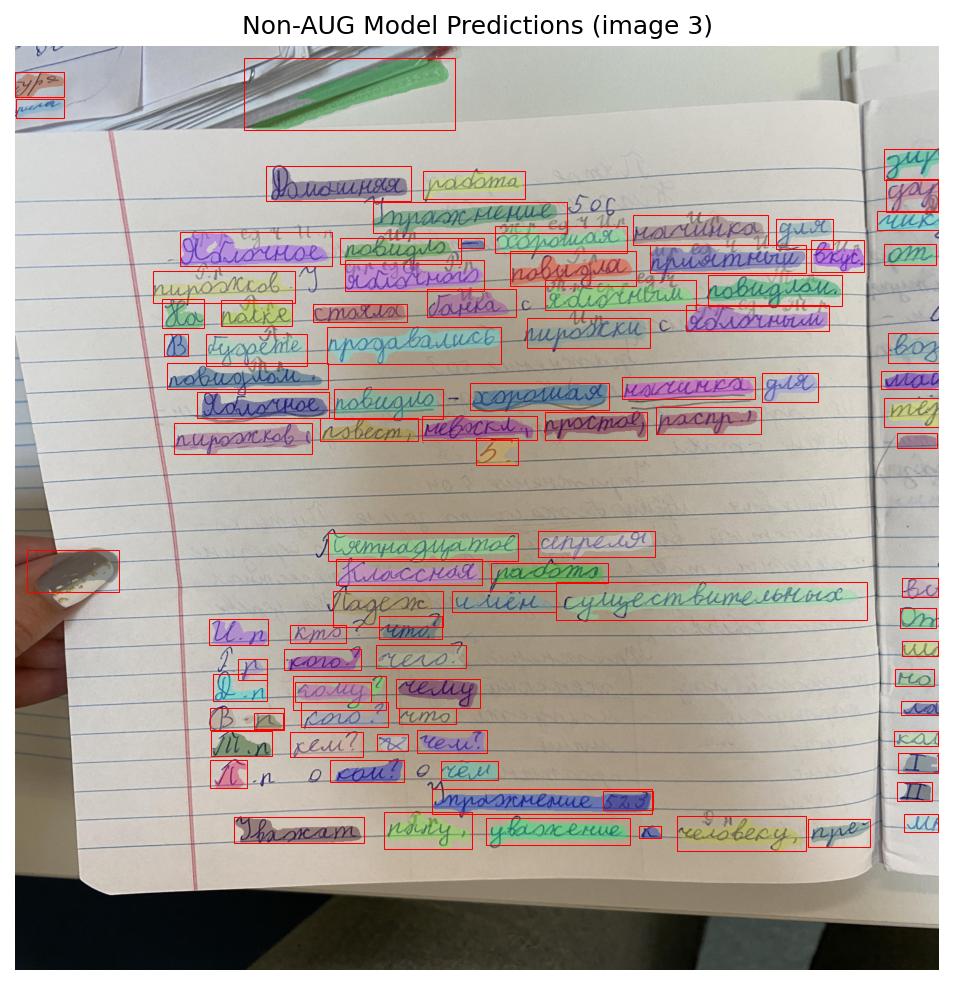 Non-AUG Model Predictions (image 3)
Домашняя работа
Упражнение 506
Яблочное повидло — хорошая начинка для
пирожков. У яблочного повидла приятный вкус
На полке стояла банка с яблочным повидлом.
В буфете продавались пирожки с яблочным
повидлом.
Яблочное повидло - хорошая начинка для
пирожков, повест, невоскл, простое, распр,
5.
Пятнадцатое апреля
Классная работа
Падеж имён существительных
И.п кто? что?
Р.п кого? чего?
Д.п кому? чему
В.п кого? что
Т.п кем? чем?
П.п о ком? о чём
Упражнение 523
Уважат папку, уважение к человеку, пре-